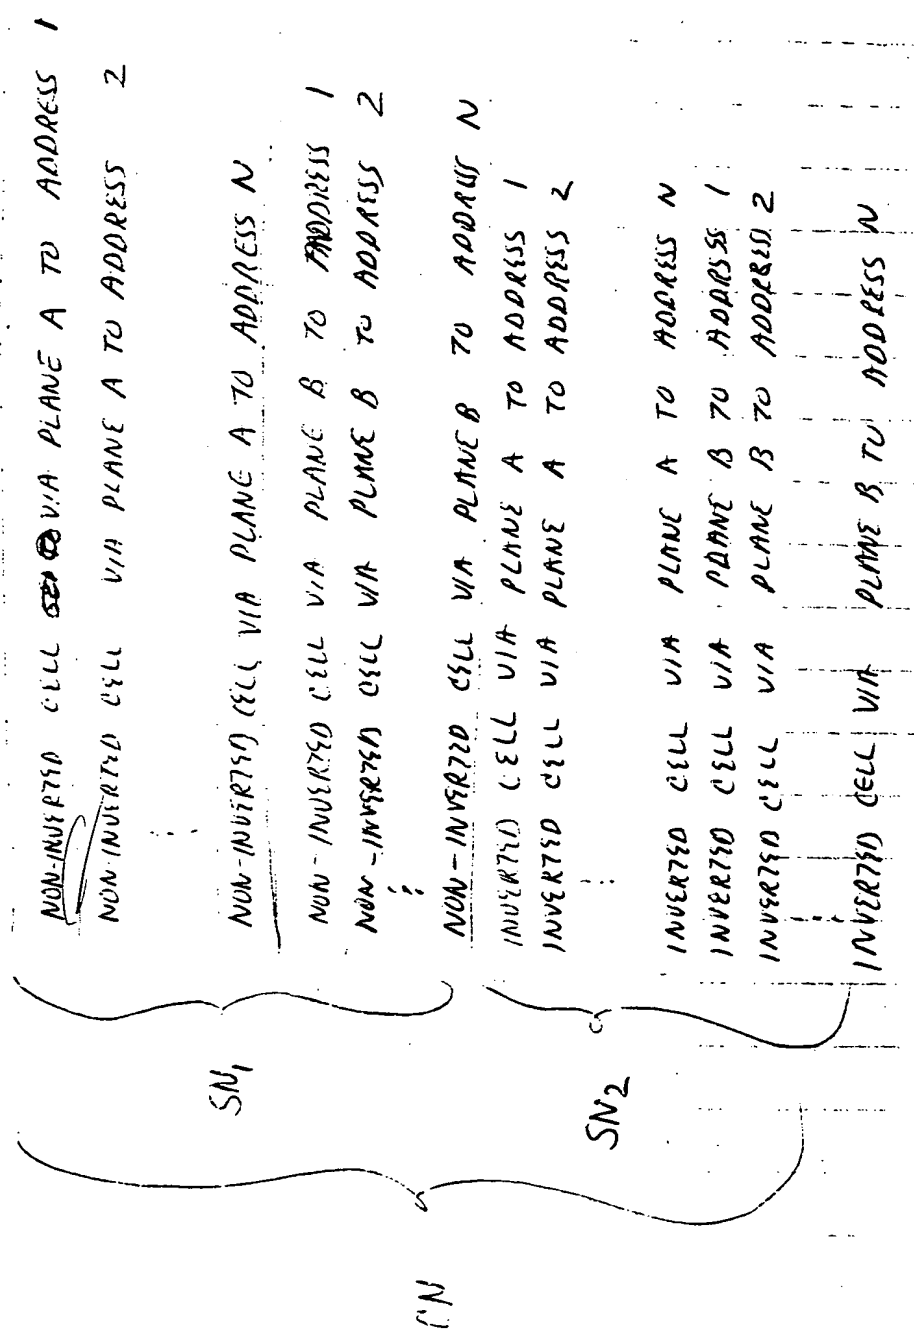 NON-INVERTED CELL VIA PLANE A TO ADDRESS 1
NON-INVERTED CELL VIA PLANE A TO ADDRESS 2
NON-INVERTED CELL VIA PLANE A TO ADDRESS N
NON-INVERTED CELL VIA PLANE B TO ADDRESS 1
NON-INVERTED CELL VIA PLANE B TO ADDRESS 2
NON-INVERTED CELL VIA PLANE B TO ADDRESS N
INVERTED CELL VIA PLANE A TO ADDRESS 1
INVERTED CELL VIA PLANE A TO ADDRESS 2
INVERTED CELL VIA PLANE A TO ADDRESS N
INVERTED CELL VIA PLANE B TO ADDRESS 1
INVERTED CELL VIA PLANE B TO ADDRESS 2
INVERTED CELL VIA PLANE B TO ADDRESS N
SN1
SN2
CN